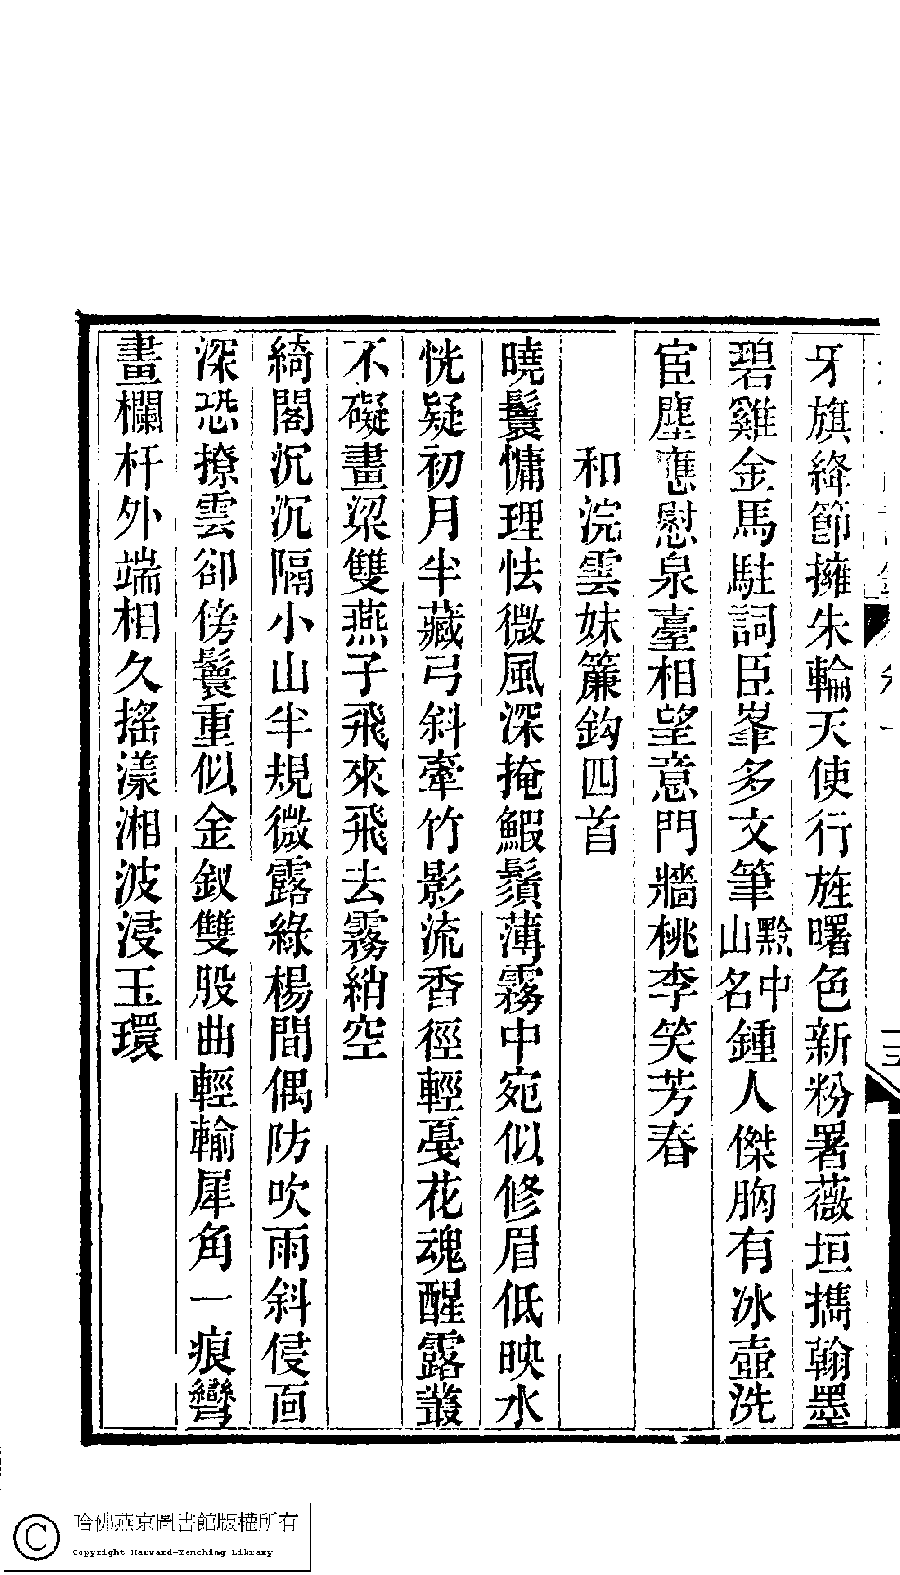 牙旗絳節擁朱輪天使行旌曙色新粉署薇垣擕翰墨
碧雞金馬駐詞臣峯多文筆黔中山名鍾人傑胸有冰壺洗
宦塵應慰泉臺相望意門牆桃李笑芳春
和浣雲妹簾鈎四首
曉鬟慵理怯微風深掩鰕鬚薄霧中宛似修眉低映水
恍疑初月半藏弓斜牽竹影流香徑輕戞花魂醒露叢
不礙畫梁雙燕子飛來飛去霧綃空
綺閣沉沉隔小山半規微露綠楊間偶防吹雨斜侵面
深恐撩雲卻傍鬟重似金釵雙股曲輕輸犀角一痕彎
畫欄杆外端相久搖漾湘波浸玉環
卷一
十三
哈佛燕京圖書館版權所有
Copyright Harvard-Yenching Library